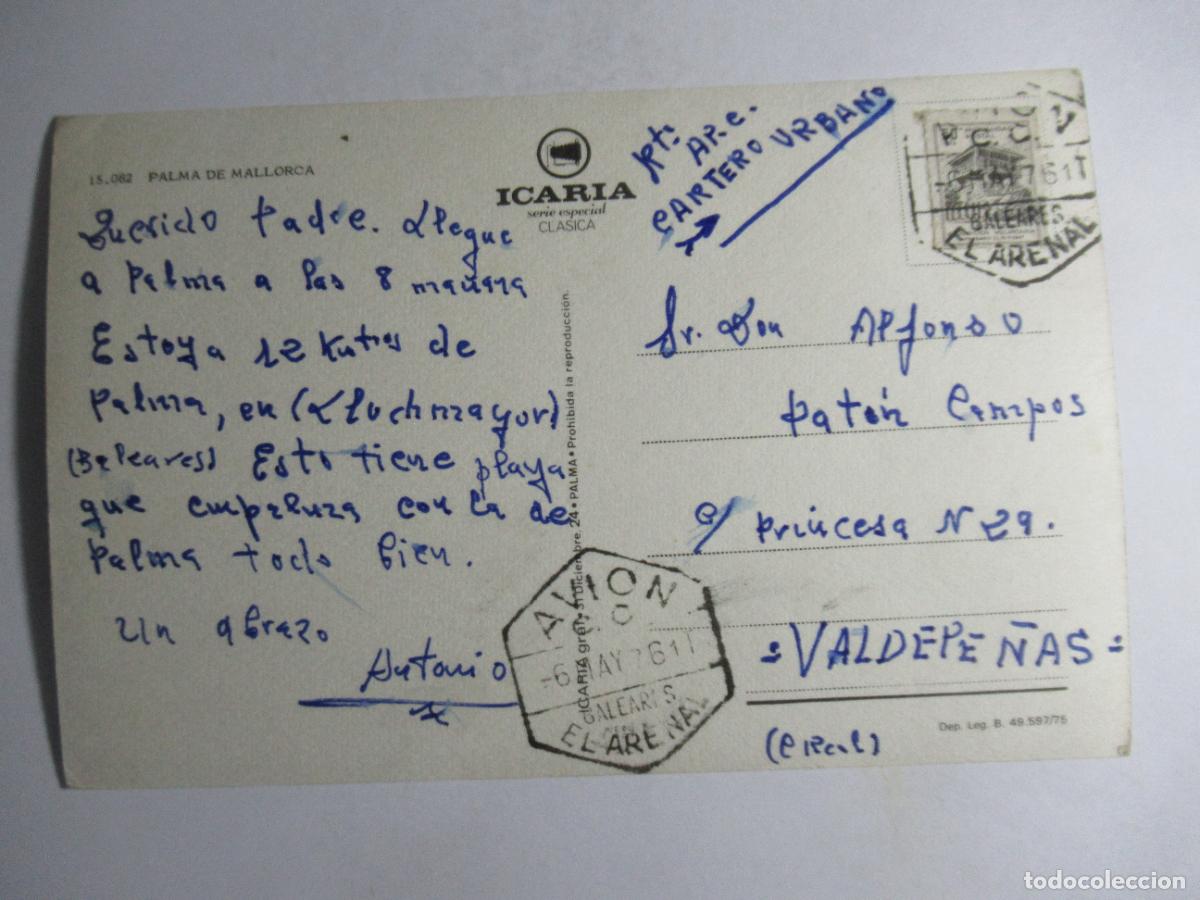 15.082 PALMA DE MALLORCA
ICARIA
serie especial
CLASICA
Querido Padre. Llegue
a Palma a las 8 mañana
Estoy a 12 Kutres de
Palma, en (Lluchmayor)
(Baleares) Esto tiene playa
que empalma con la de
Palma todo bien.
Un abrazo
Antonio
ICARIA graf. 31 Diciembre, 24 • PALMA • Prohibida la reproducción.
Rte. AP.C.
CARTERO URBANO
Sr. Don Alfonso
Patón Campos
C/ Princesa N 29.
=VALDEPEÑAS=
(C Real)
Dep. Leg. B. 49.597/75
AVION
C
-6 MAY 76 11
BALEARES
EL ARENAL
C C
76 11
BALEARES
EL ARENAL
todocoleccion